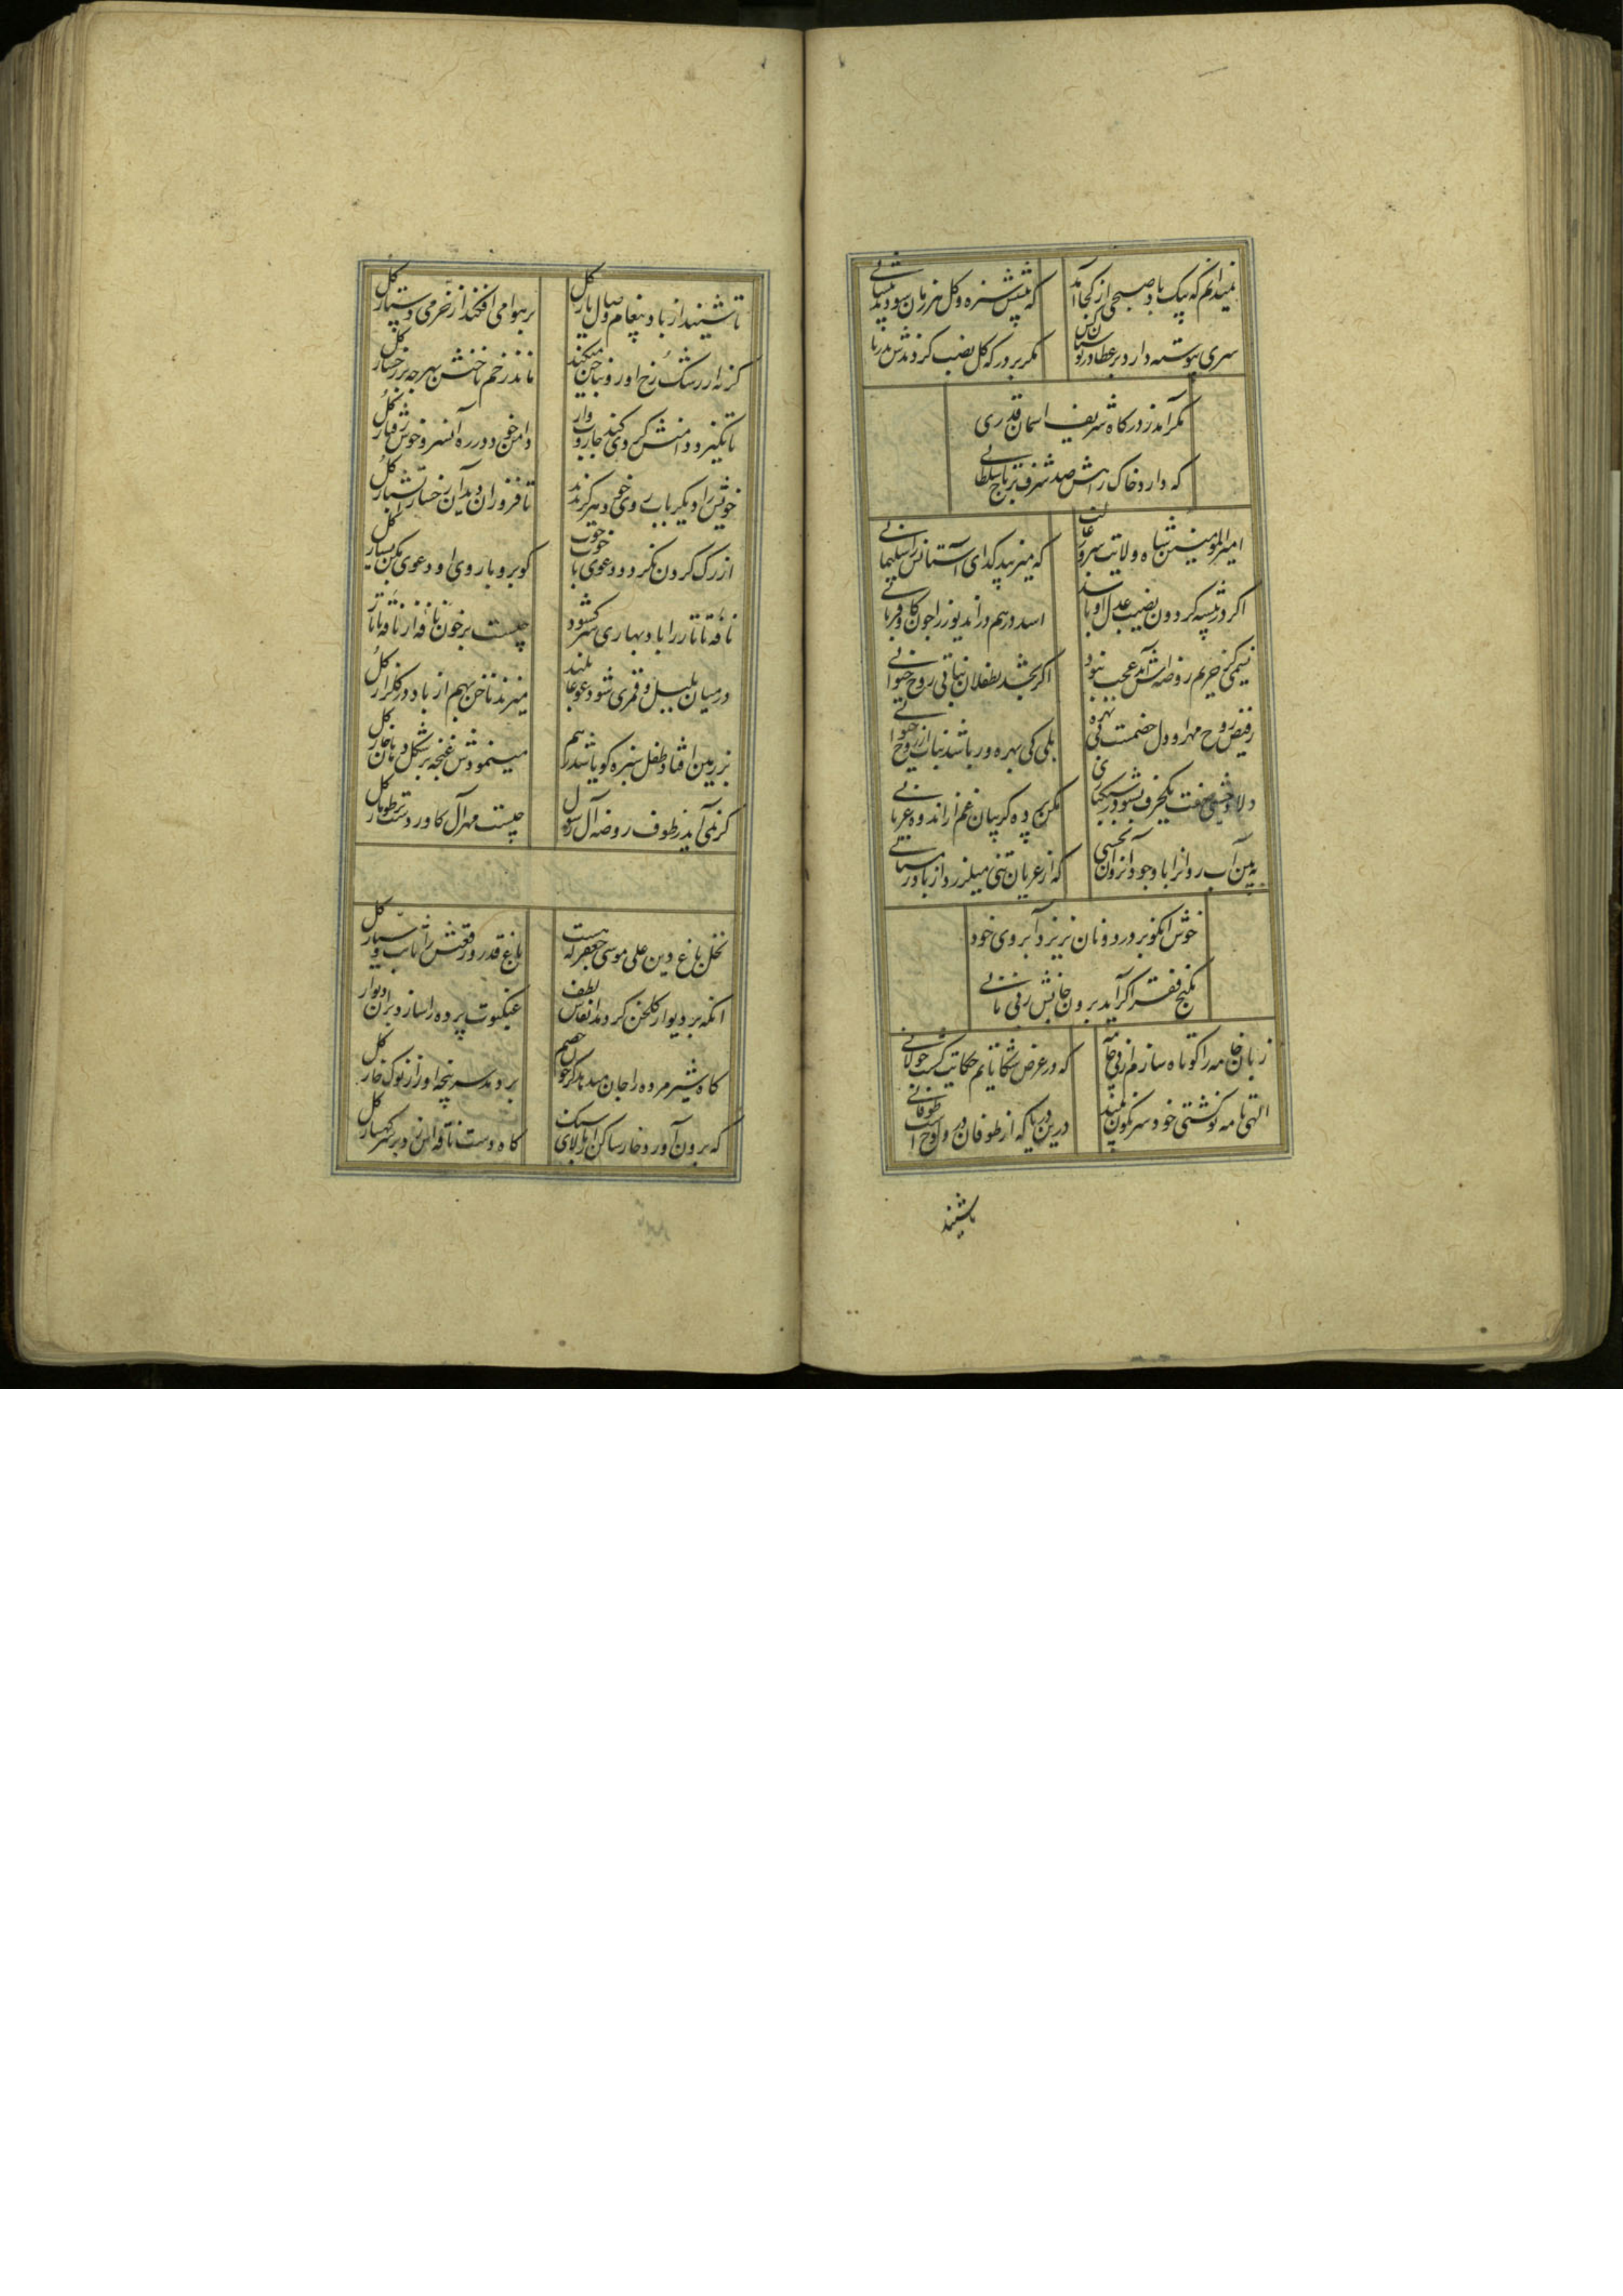 نمیدانم که پیک باد صبحی از کجا آمد
که پیش سبزه و گل هر زمان سود پیشانی
سری پیوسته دارد بر عطا در بوستان
مگر بر درکه کل نصب کردندش بدربانی
مکر آمد ز درگاه شریف اسمان قدری
که دارد خاک راهش صد شرف بر تاج سلطانی
امیرالمؤمنین شاه ولایت سرور غالب
که میزیبد گدای آستانش را سلیمانی
اگر در بیشه گردون نصیب عدل او باشد
اسد در هم دراند یوز را چون گاو قربانی
نسیمی کز حریم روضه‌اش آمد عجب نبود
اگر بخشد بطفلان نباتی روح حیوانی
ز فیض روح مهر او دل خصمت بی بهره
بلی کی بهره ور باشد نبات از روح حیوانی
دلا وحشی صفت یکحرف بشنو در سبکباری
مکن چاه کریبان غم از اندوه عریانی
ببین آب روانرا با وجود آنروان بخشی
که از عریان تنی میلرزد از باد زمستانی
خوش آنکو بر در دونان نریزد آبروی خود
بکنج فقر اگر آید برون جانش ز بی نانی
زبان خامه را کوتاه سازم از فی خامه
که در عرض شکایتهم حکایت گشت طولانی
الهی تا مه نو کشتی خود سرنگون بیند
درین دریا که از طوفان درو نوح است طوفانی
تا شنید
تا شنید از باد پیغام وصال یار گل
بر هوا می‌افکند از خرمی دستار گل
گر نه از رشک رخ او رو بناخن میکند
ماند ز زخم ناخنش بهر چه بر رخسار گل
تا نگیرد دامنش گردی کند جاروب وار
دامن خود در ره آنسرو خوش رفتار گل
خویش را دیگر بآب روی خود هرگز ندید
تا فروزان دید آن رخسار آتشبار گل
از رگ گردن نکردد دعوی با خوب خوب
گو برو با روی او دعوی مکن بسیار گل
نافه تاتار را باد بهاری سر گشود
چیست پر خون نافه از نافه تاتار
در میان بلبل و قمری شود غوغا بلند
میزند ناخن بهم از باد در گلزار گل
بر زمین افتاد طفل سبزه گویا شد ز هم
مینمودش غنچه بر شکل دهان مار گل
گر نمی‌آید ز طوف روضه آل رسول
چیست مهر آل کاورد ست بر طومار گل
نخل باغ دین علی موسی جعفر که هست
باغ قدر و رفعتش را ثابت و سیار گل
آنکه بر دیوار گلخن گر دمد انفاس لطف
عنکبوت پرده را سازد بر آن دیوار گل
گاه شیر مرده را جان میدهد کز خون خصم
بر دمد سر پنجه او را ز نوک خار گل
که برون آورد خار ساکن از بالای سنگ
گاه دست ناقه از دبر سر کهسار گل